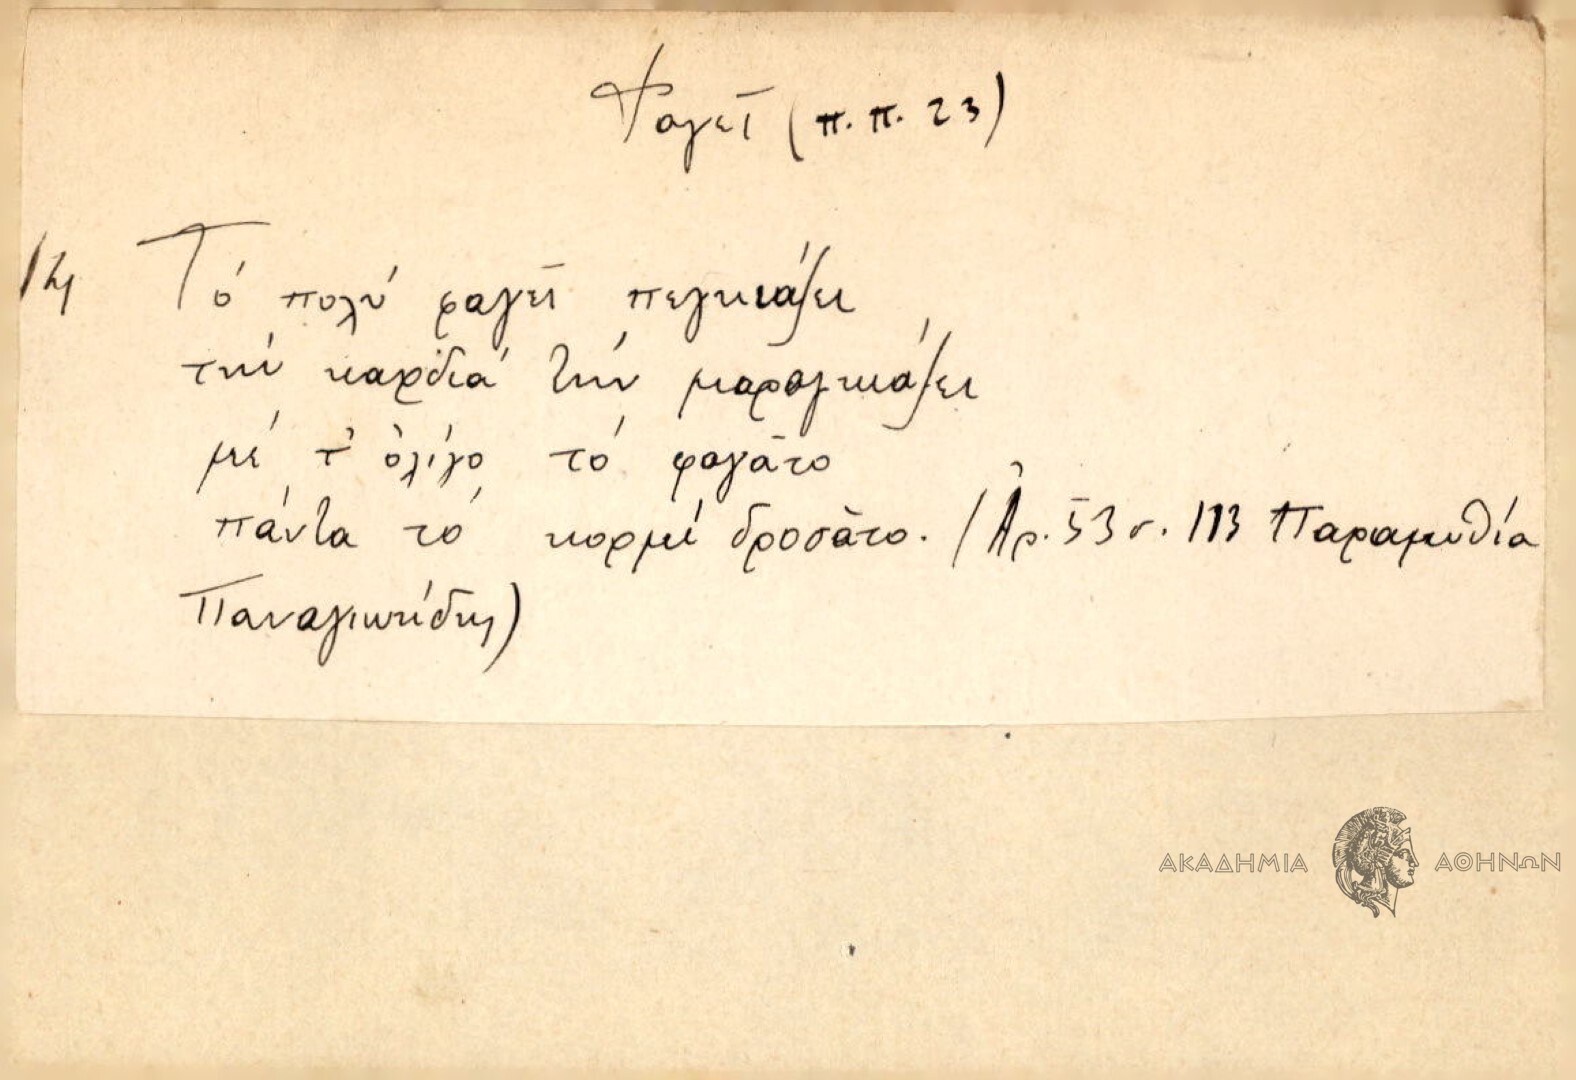 Φαγεῖ (π. π. 23)
14 Τό πολύ φαγεῖ πεγκιάζει
τήν καρδιά τήν μαραγκιάζει
μέ τ' ὀλίγο τό φαγᾶτο
πάντα τό κορμί δροσᾶτο. (Ἀρ. 53 σ. 113 Παραμυθία
Παναγιωτίδης)
ΑΚΑΔΗΜΙΑ ΑΘΗΝΩΝ